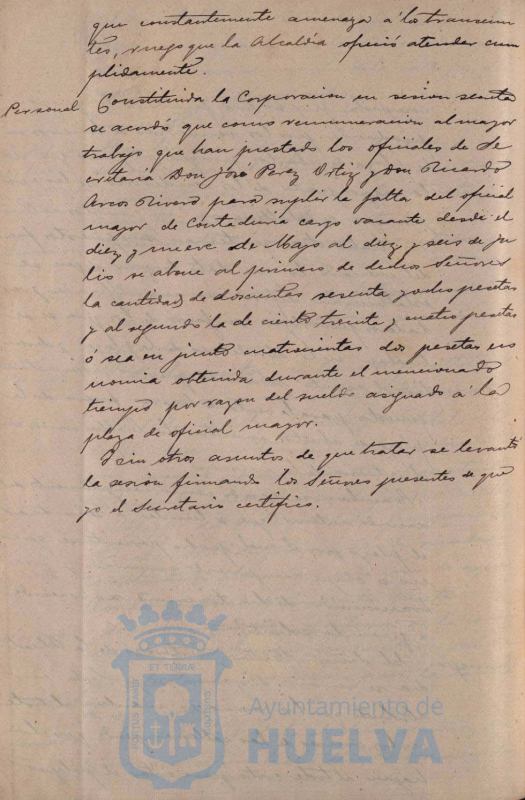 que constantemente amenaza á los transeun
tes, ruego que la Alcaldía ofreció atender cum
plidamente.
Personal Constituida la Corporacion en sesion secreta
se acordó que como remuneracion al mayor
trabajo que han prestado los oficiales de Se
cretaria Don José Perez Ortiz y Don Ricardo
Arcos Rivero para suplir la falta del oficial
mayor de Contaduria cargo vacante desde el
diez y nueve de Mayo al diez y seis de Ju
lio se abone al primero de dichos Señores
la cantidad de doscientas sesenta y ocho pesetas
y al segundo la de ciento treinta y cuatro pesetas
ó sea en junto cuatrocientas dos pesetas eco
nomia obtenida durante el mencionado
tiempo por razon del sueldo asignado á la
plaza de oficial mayor.
Y sin otros asuntos de que tratar se levantó
la sesion firmando los Señores presentes de que
yo el Secretario certifico.
ET TERRÆ
PORTUS MARIS
CUSTODIA
Ayuntamiento de
HUELVA